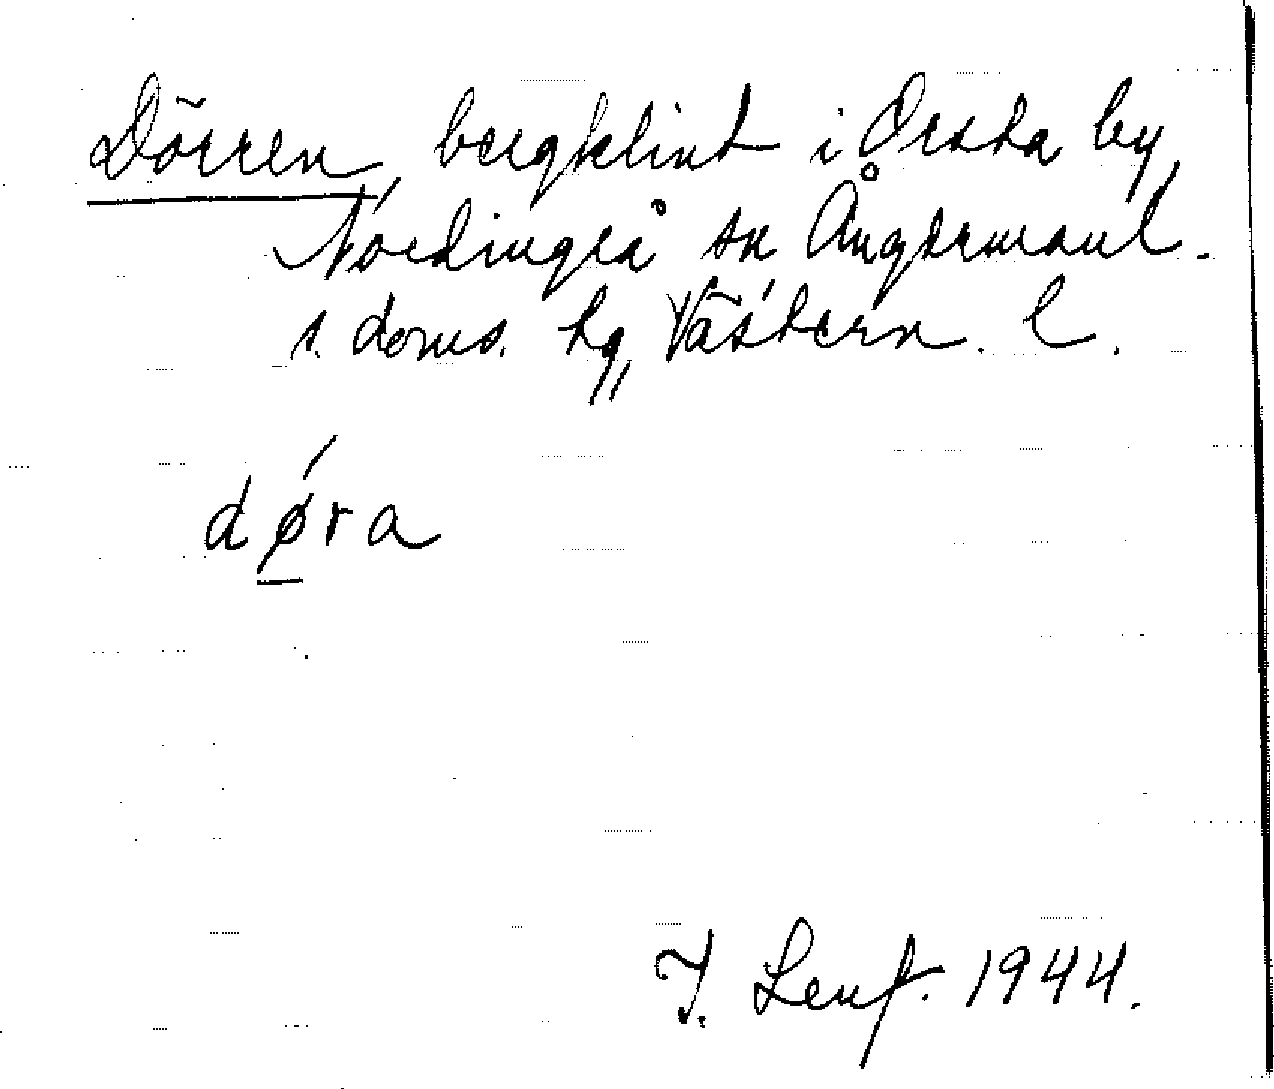 Dörren, bergklint i Orsta by,
Nordingrå sn Ångermanl.
s. doms. hg, Västern. l.
døra
I. Lenf. 1944.